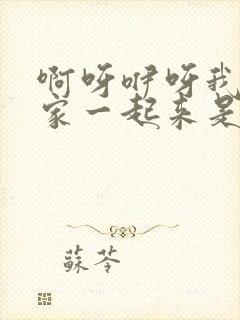 啊呀咿呀我
家一起来是
蘇苓